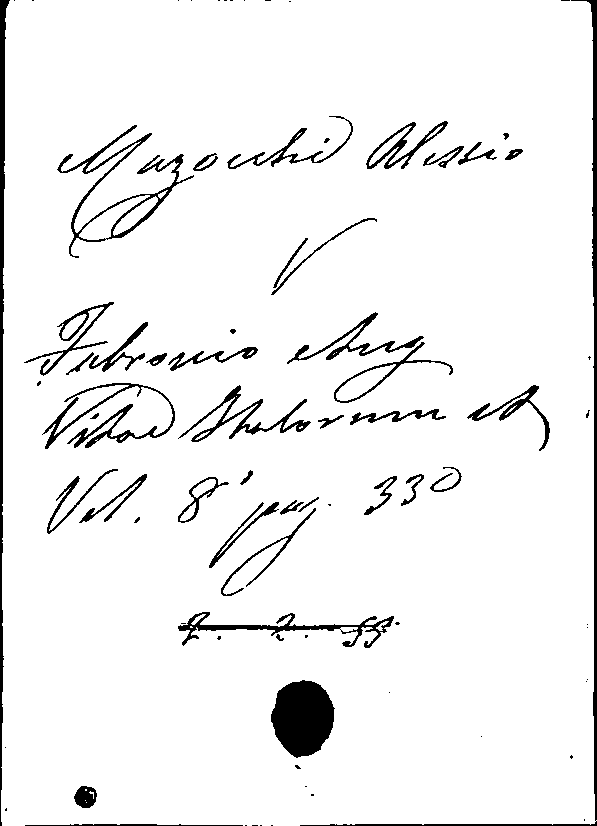 Mazocchi Alessio
V
Fabronio Ang
Vitae Italorum et
Vol. 8° pag. 330
2. 2. 55.